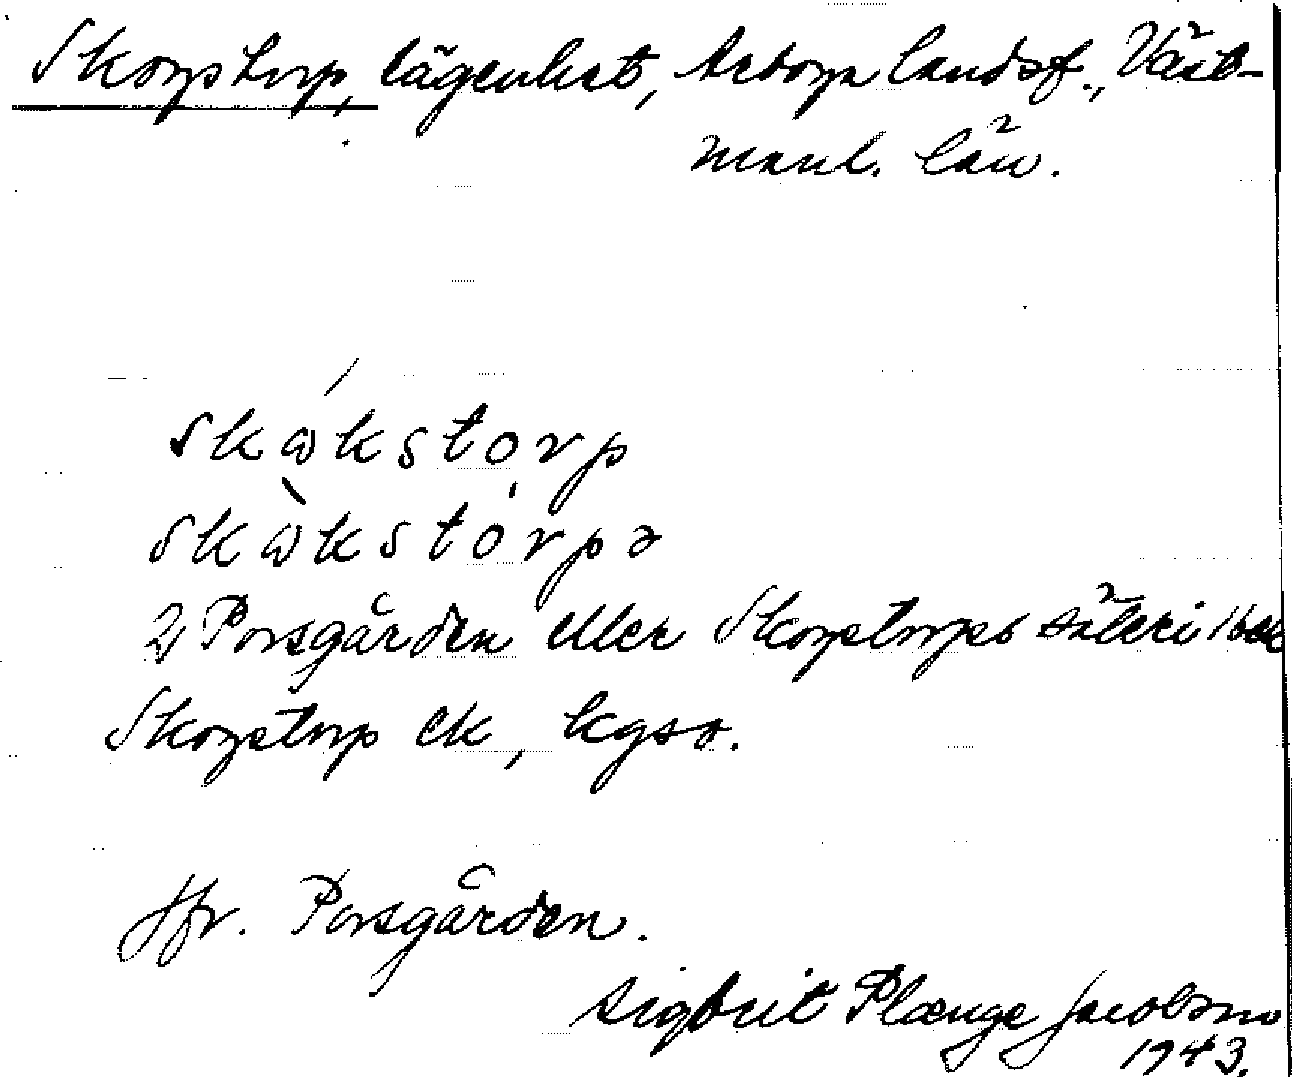 Skogstorp, lägenhet, Arboga landsf., Väst-
manl. län.
skǿkstorp
skòkstórpə
2) Porsgården eller Skogstorps säteri
Skogstorp ek, kgso.
Jfr. Porsgården.
Sigbrit Plænge Jacobson
1943.